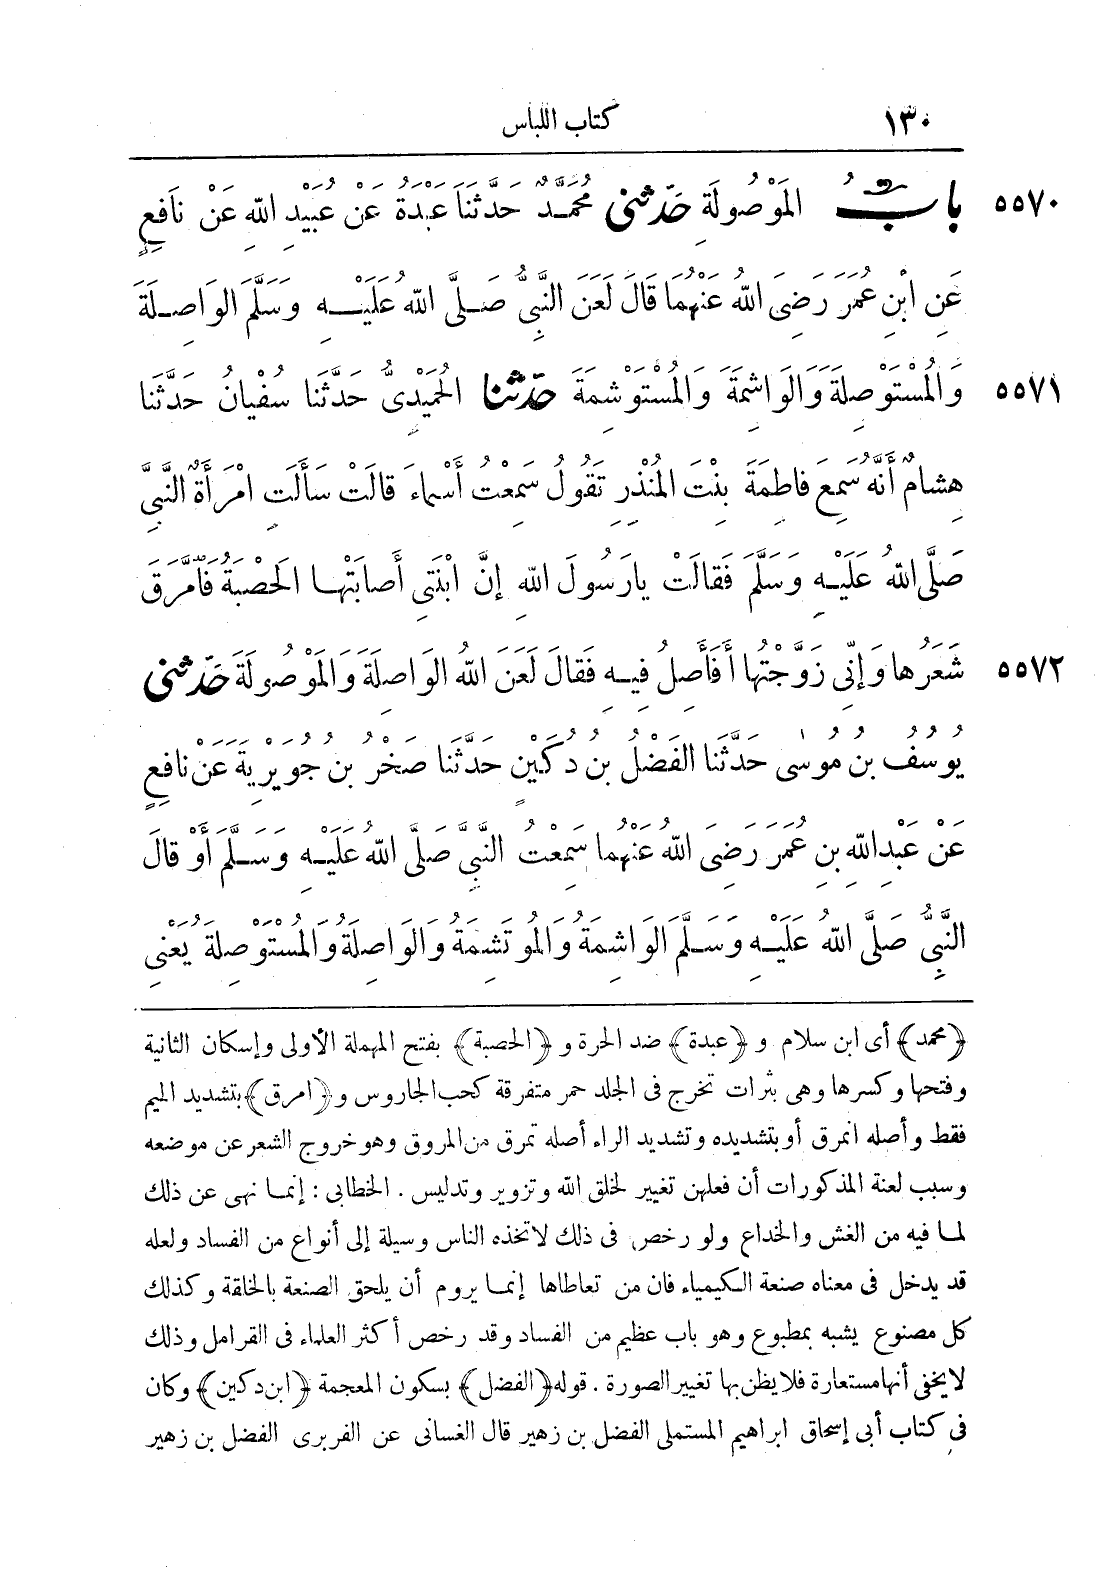 ١٣٠ كتاب اللباس
٥٥٧٠ بابُ المَوْصُولَةِ حَدَّثَنِى مُحَمَّدٌ حَدَّثَنَا عَبْدَةُ عَنْ عُبَيْدِ اللهِ عَنْ نَافِعٍ
عَنِ ابْنِ عُمَرَ رَضِىَ اللهُ عَنْهُمَا قَالَ لَعَنَ النَّبِىُّ صَلَّى اللهُ عَلَيْهِ وَسَلَّمَ الوَاصِلَةَ
٥٥٧١ وَالمُسْتَوْصِلَةَ وَالوَاشِمَةَ وَالمُسْتَوْشِمَةَ حَدَّثَنَا الحُمَيْدِىُّ حَدَّثَنَا سُفْيَانُ حَدَّثَنَا
هِشَامٌ أَنَّهُ سَمِعَ فَاطِمَةَ بِنْتَ المُنْذِرِ تَقُولُ سَمِعْتُ أَسْمَاءَ قَالَتْ سَأَلَتِ امْرَأَةٌ النَّبِىَّ
صَلَّى اللهُ عَلَيْهِ وَسَلَّمَ فَقَالَتْ يَارَسُولَ اللهِ إِنَّ ابْنَتِى أَصَابَتْهَا الحَصْبَةُ فَامَّرَقَ
٥٥٧٢ شَعَرُهَا وَإِنِّى زَوَّجْتُهَا أَفَأَصِلُ فِيهِ فَقَالَ لَعَنَ اللهُ الوَاصِلَةَ وَالمَوْصُولَةَ حَدَّثَنِى
يُوسُفُ بْنُ مُوسَى حَدَّثَنَا الفَضْلُ بْنُ دُكَيْنٍ حَدَّثَنَا صَخْرُ بْنُ جُوَيْرِيَةَ عَنْ نَافِعٍ
عَنْ عَبْدِاللهِ بْنِ عُمَرَ رَضِىَ اللهُ عَنْهُمَا سَمِعْتُ النَّبِىَّ صَلَّى اللهُ عَلَيْهِ وَسَلَّمَ أَوْ قَالَ
النَّبِىُّ صَلَّى اللهُ عَلَيْهِ وَسَلَّمَ الوَاشِمَةُ وَالمُوتَشِمَةُ وَالوَاصِلَةُ وَالمُسْتَوْصِلَةُ يَعْنِى
﴿محمد﴾ أى ابن سلام و﴿عبدة﴾ ضد الحرة و﴿الحصبة﴾ بفتح المهملة الأولى وإسكان الثانية
وفتحها وكسرها وهى بثرات تخرج فى الجلد حمر متفرقة كحب الجاروس و﴿امرق﴾ بتشديد الميم
فقط وأصله انمرق أو بتشديده وتشديد الراء أصله تمرق من المروق وهو خروج الشعر عن موضعه
وسبب لعنة المذكورات أن فعلهن تغيير لخلق الله وتزوير وتدليس . الخطابى : إنما نهى عن ذلك
لما فيه من الغش والخداع ولو رخص فى ذلك لاتخذه الناس وسيلة إلى أنواع من الفساد ولعله
قد يدخل فى معناه صنعة الكيمياء فان من تعاطاها إنما يروم أن يلحق الصنعة بالخلقة وكذلك
كل مصنوع يشبه بمطبوع وهو باب عظيم من الفساد وقد رخص أكثر العلماء فى القرامل وذلك
لايخفى أنها مستعارة فلا يظن بها تغيير الصورة . قوله ﴿الفضل﴾ بسكون المعجمة ﴿ابن دكين﴾ وكان
فى كتاب أبى إسحاق ابراهيم المستملى الفضل بن زهير قال الغسانى عن الفربرى الفضل بن زهير